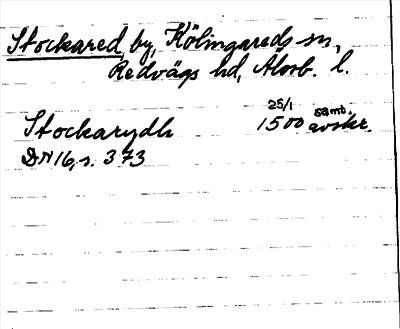 Stockared by, Kölingareds sn,
Redvägs hd, Älvsb. l.
Stockarydh 25/1 1500 samt. avskr.
DN 16, s. 373